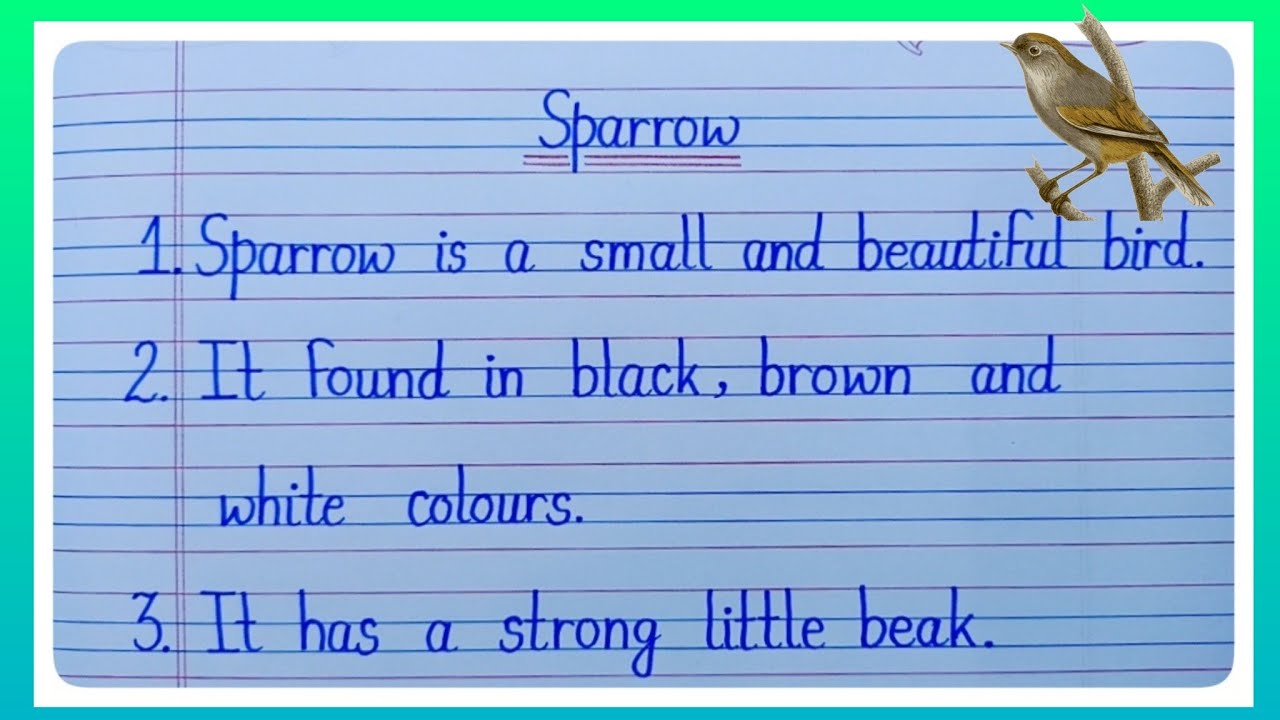 Sparrow
1. Sparrow is a small and beautiful bird.
2. It found in black, brown and
white colours.
3. It has a strong little beak.